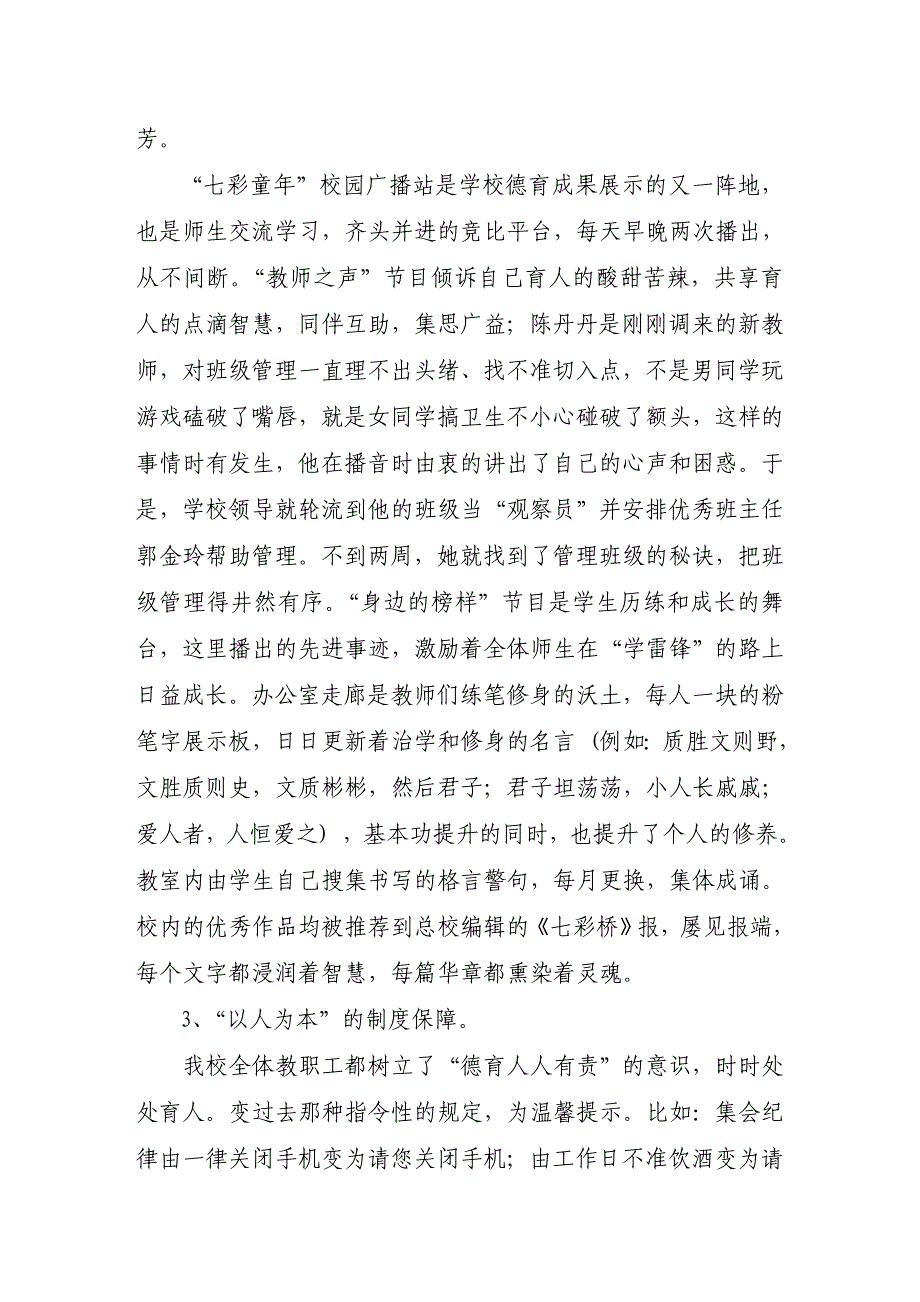 芳。
“七彩童年”校园广播站是学校德育成果展示的又一阵地，
也是师生交流学习，齐头并进的竞比平台，每天早晚两次播出，
从不间断。“教师之声”节目倾诉自己育人的酸甜苦辣，共享育
人的点滴智慧，同伴互助，集思广益；陈丹丹是刚刚调来的新教
师，对班级管理一直理不出头绪、找不准切入点，不是男同学玩
游戏磕破了嘴唇，就是女同学搞卫生不小心碰破了额头，这样的
事情时有发生，他在播音时由衷的讲出了自己的心声和困惑。于
是，学校领导就轮流到他的班级当“观察员”并安排优秀班主任
郭金玲帮助管理。不到两周，她就找到了管理班级的秘诀，把班
级管理得井然有序。“身边的榜样”节目是学生历练和成长的舞
台，这里播出的先进事迹，激励着全体师生在“学雷锋”的路上
日益成长。办公室走廊是教师们练笔修身的沃土，每人一块的粉
笔字展示板，日日更新着治学和修身的名言（例如：质胜文则野，
文胜质则史，文质彬彬，然后君子；君子坦荡荡，小人长戚戚；
爱人者，人恒爱之），基本功提升的同时，也提升了个人的修养。
教室内由学生自己搜集书写的格言警句，每月更换，集体成诵。
校内的优秀作品均被推荐到总校编辑的《七彩桥》报，屡见报端，
每个文字都浸润着智慧，每篇华章都熏染着灵魂。
3、“以人为本”的制度保障。
我校全体教职工都树立了“德育人人有责”的意识，时时处
处育人。变过去那种指令性的规定，为温馨提示。比如：集会纪
律由一律关闭手机变为请您关闭手机；由工作日不准饮酒变为请